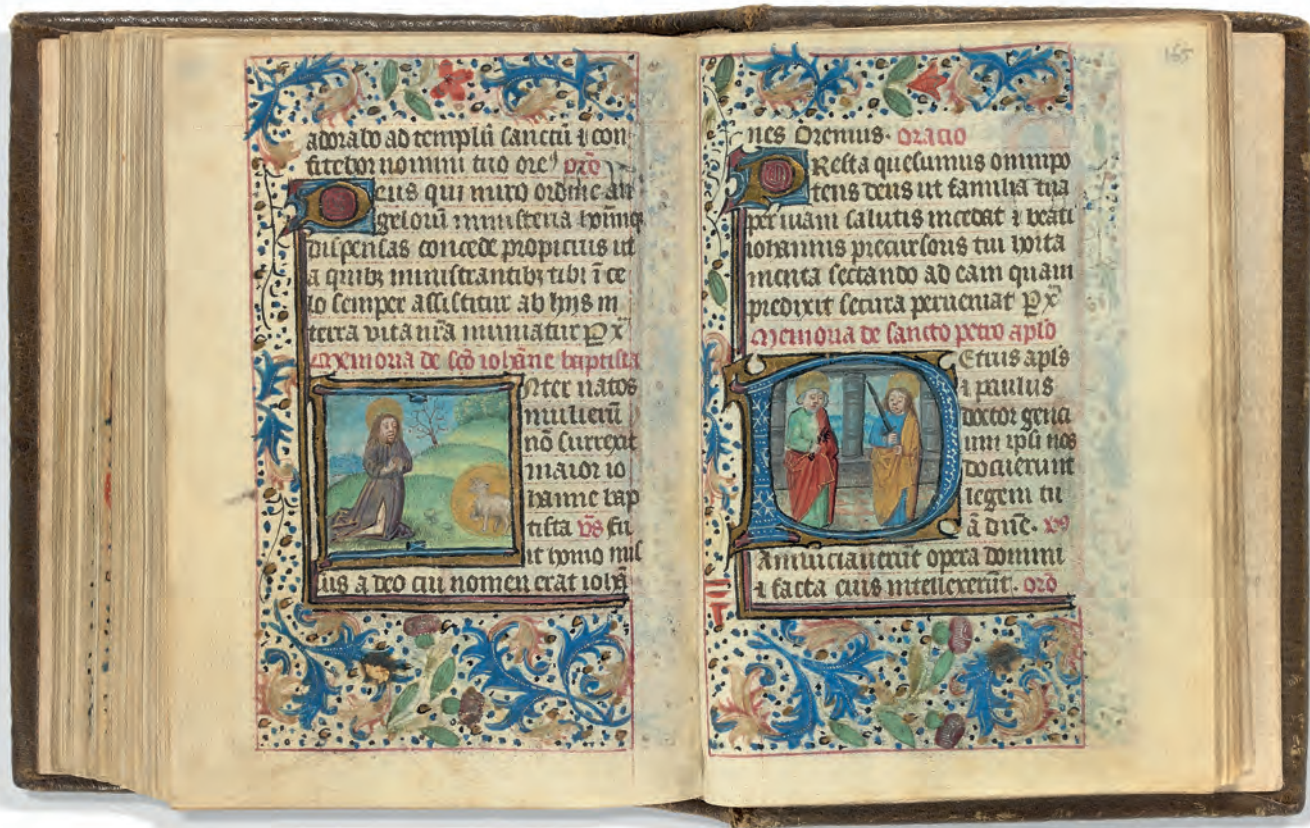 adorabo ad templū sanctū ⁊ con
fitebor nomini tuo ore᷒ orō
Deus qui miro ordine an
gelorū ministeria hoīmq̄
dispensas concede propicius ut
a quibꝫ ministrantibꝫ tibi ī ce
lo semper assistitur ab hijs in
terra vita nr̄a muniatur P xp̄
Memoria de scō iohāne baptista
Inter natos
mulierū
nō surrexit
maior io
hanne bap
tista vs̄ fu
it homo mis
sus a deo cui nomen erat iohā
165
nes Oremus. oracio
PResta quesumus omnipo
tens deus ut familia tua
per viam salutis incedat ⁊ beati
iohannis precursoris tui horta
menta sectando ad eam quam
predixit secura perveniat P xp̄
Memoria de sancto petro aplō
PEtrus apls
⁊ paulus
doctor genci
um ipsi nos
docuerunt
legem tu
ā dn̄e. vs̄
Annunciaverūt opera domini
⁊ facta eius intellexerūt. orō